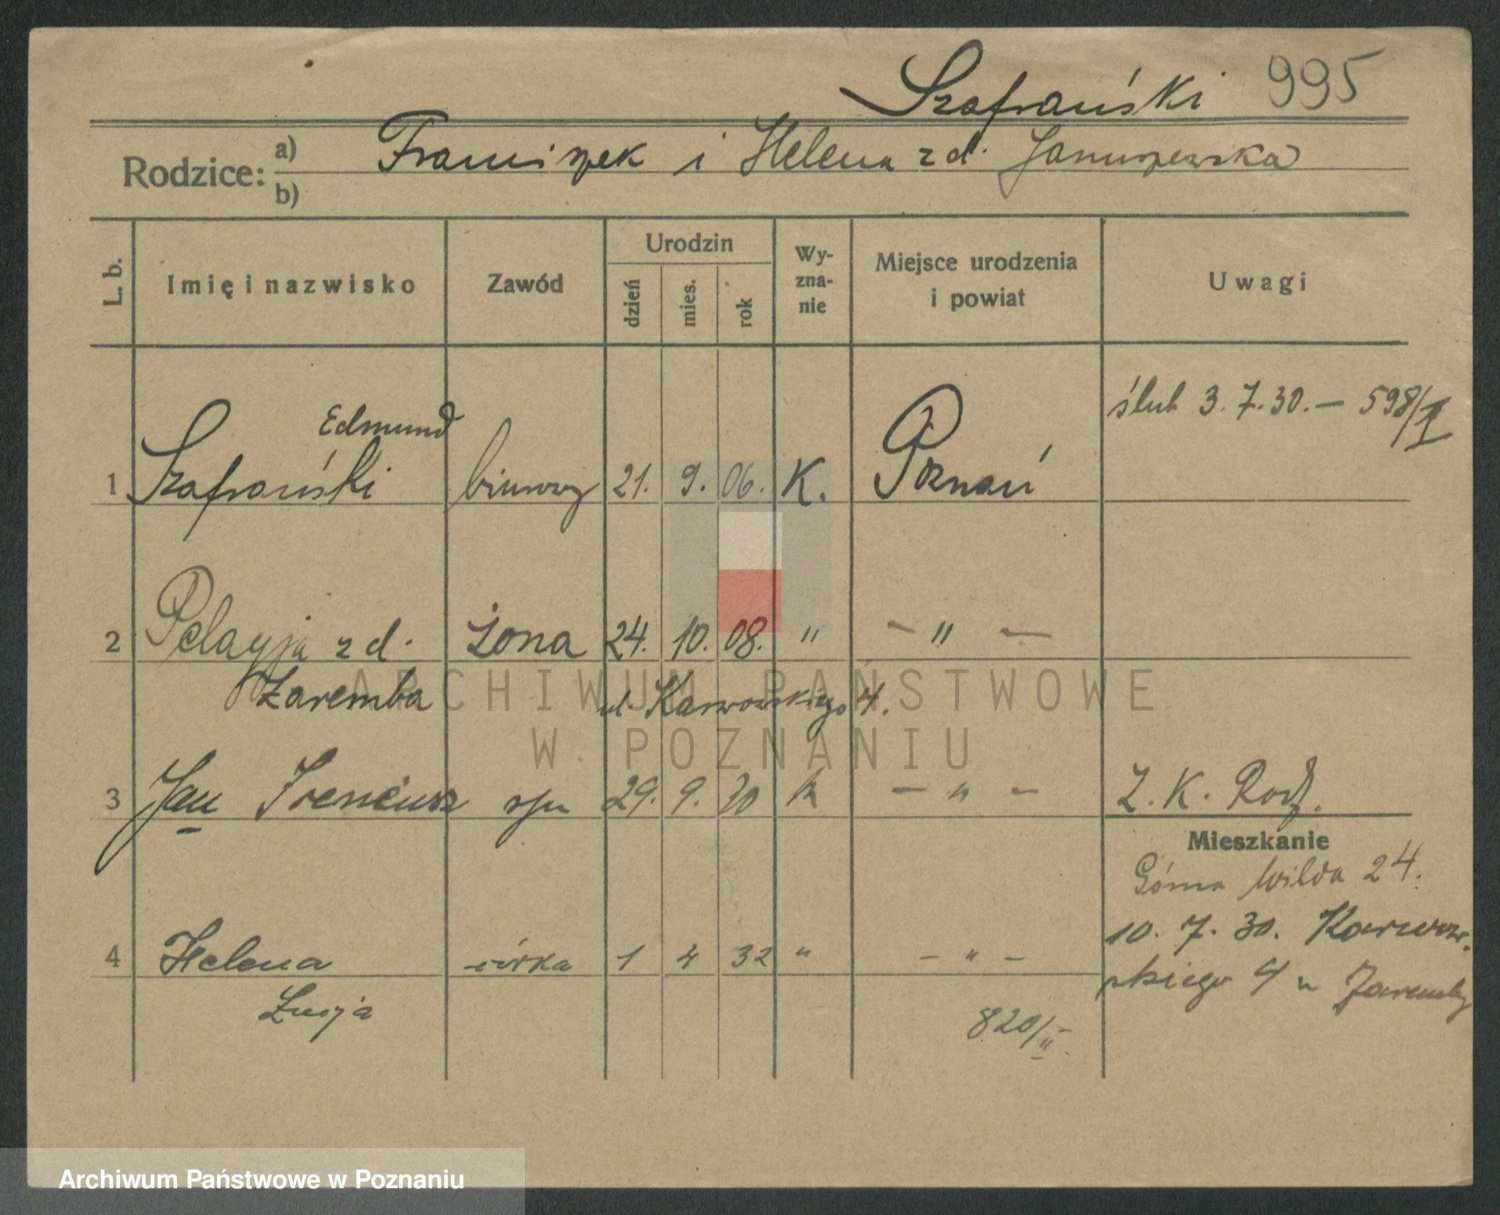 Szafrański 995
Rodzice: a) Franciszek i Helena z d. Januszewska
b)
L. b.
Imię i nazwisko
Zawód
Urodzin
dzień
mies.
rok
Wy-
zna-
nie
Miejsce urodzenia
i powiat
Uwagi
ślub 3.7.30. — 598/II
Edmund
1 Szafrański biurowy 21. 9. 06. K. Poznań
2 Pelagja z d. Żona 24. 10. 08. " — " —
Zaremba ul. Karwowskiego 4.
ARCHIWUM PAŃSTWOWE
W POZNANIU
3 Jan Ireneusz syn 29. 9. 30 k — " — Z. K. Rodz.
Mieszkanie
Górna Wilda 24.
10. 7. 30. Karwow-
skiego 4 u Zaremby
4 Helena córka 1 4 32 " — " —
Łucja
820/II
Archiwum Państwowe w Poznaniu